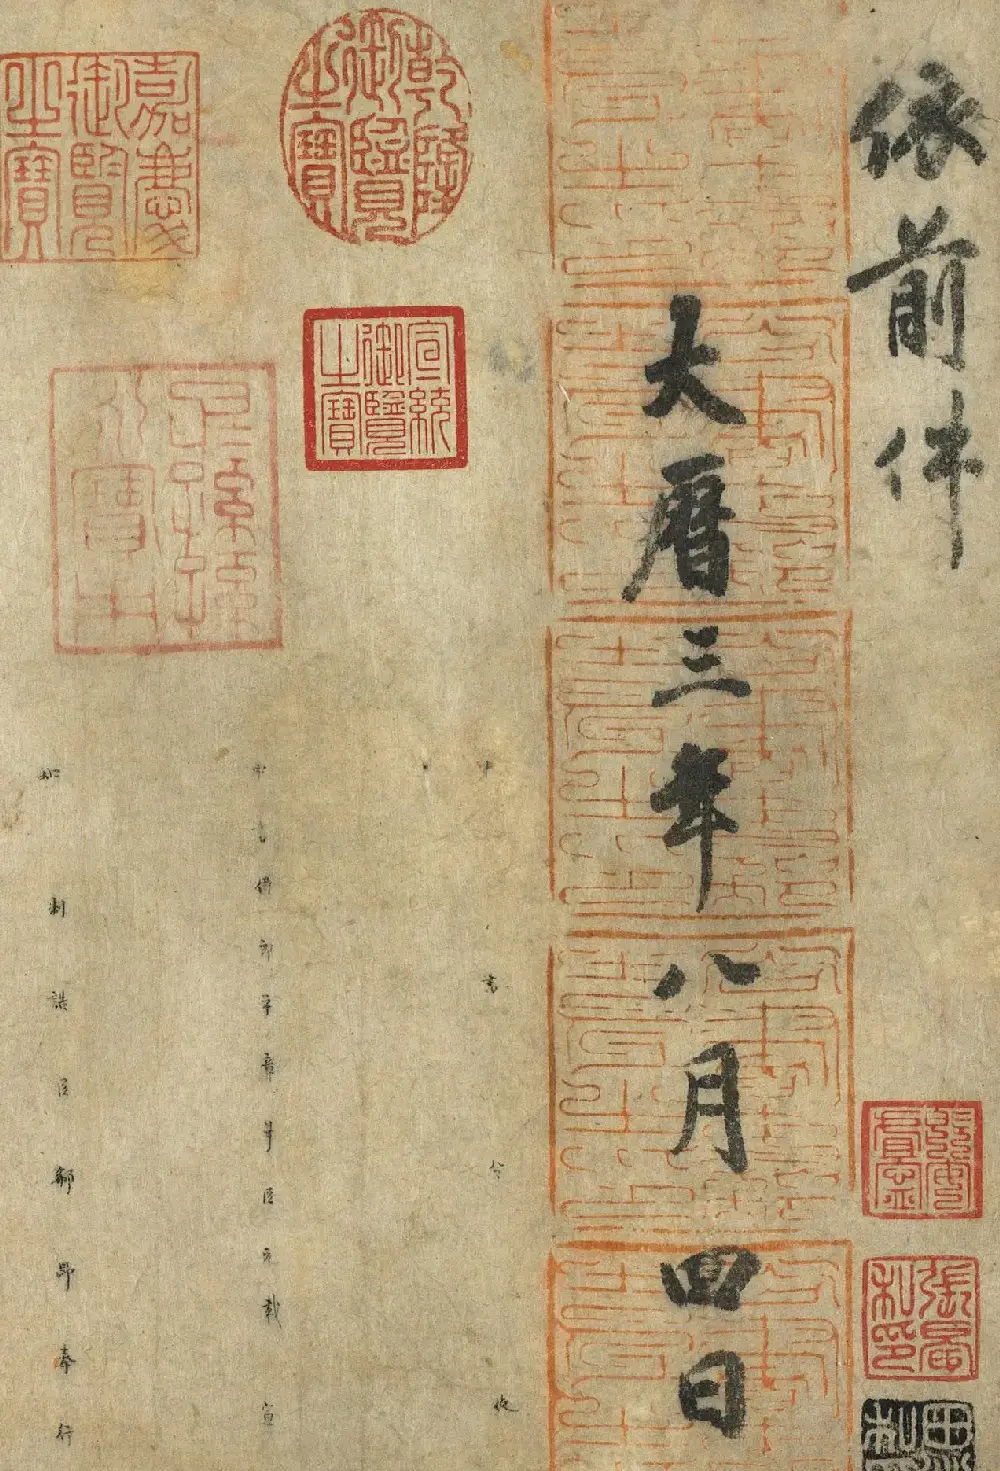 依前件
大曆三年八月四日
中書令使
中書侍郎平章事臣元載宣
知制誥臣郗昂奉行
乾隆御覽之寶
宣統御覽之寶
嘉慶御覽之寶
張晏私印